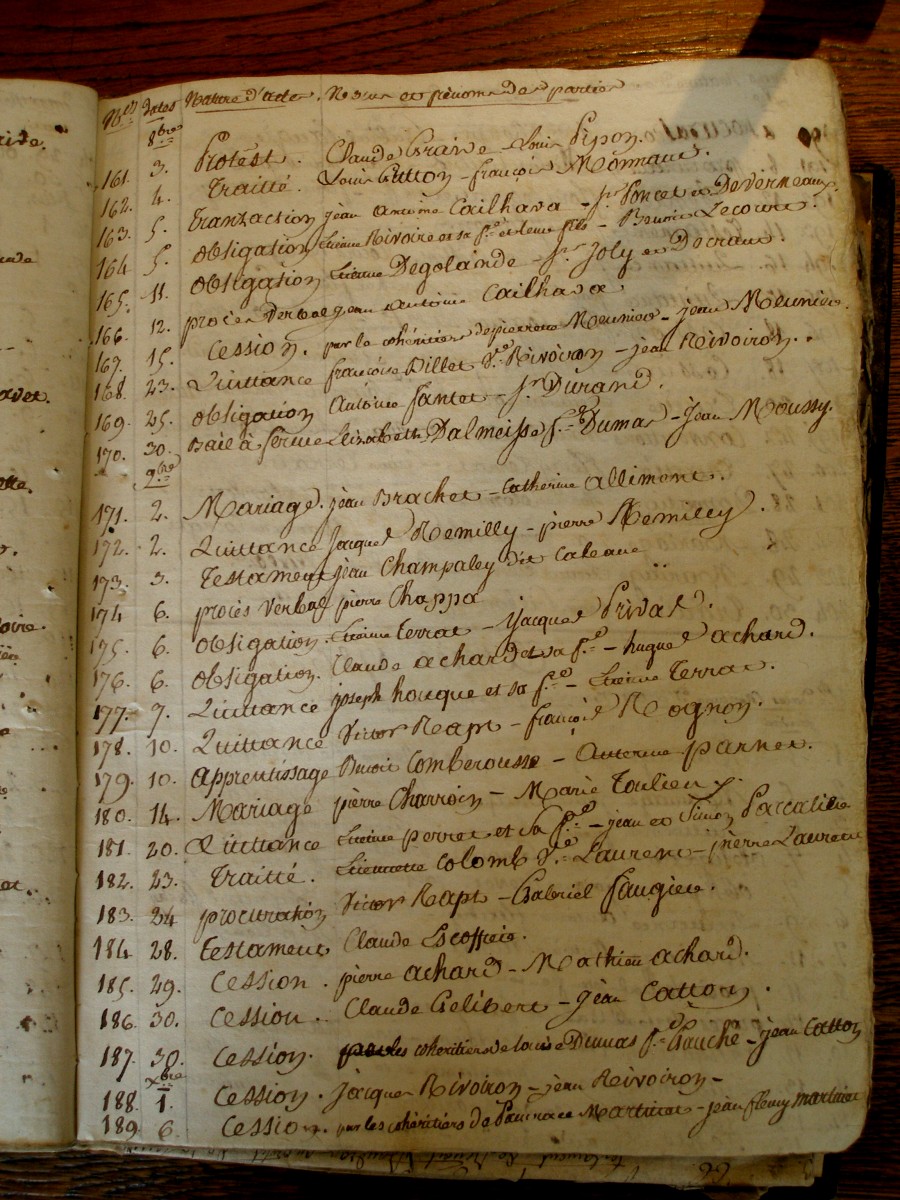 Nos Dates Nature d'actes. Noms et prénoms des parties
8bre
161. 3. Protêt. Claude Grand - Louis Pipon.
162. 4. Traitté. Louis Gutton - françois Mornaud.
163. 5. Tranzaction jean antoine Cailhava - Jn Poncet et Deverneaux.
164 5. obligation Etienne Rivoire et sa fe et leur fils - Benoit Lecourt.
165. 11. obligation Etienne Degolande - Jn Joly et Docraux.
166. 12. procès verbal jean antoine Cailhava
167. 15. Cession. par les cohéritiers de pierre Meunier - jean Meunier.
168. 23. Quittance françoise Billet Ve Rivoiron - jean Rivoiron.
169. 25. obligation Antoine fantet - Jn Durand.
170. 30. Bail à ferme Elizabeth Dalmeisse fe Dumas - Jean Moussy.
9bre
171. 2. Mariage. jean Brachet - Catherine alliment.
172. 2. Quittance jacques Remilly - pierre Remilly.
173. 3. Testament jean Champaley dit
174 6. procès verbal pierre Chappa
175. 6. obligation. Etienne terrat - jacques Privat.
176. 6. obligation. Claude achard et sa fe - hugues achard.
177. 7. Quittance joseph houque et sa fe - Etienne Terrat.
178. 10. Quittance Victor Rapt - françois Rognon.
179. 10. apprentissage Benoit Comberousse - Antoine parnet.
180. 14. Mariage pierre Charroin - Marie Toulieux.
181. 20. Quittance Etienne perret et sa fe - jean et Simon
182. 23. Traitté. Etiennette Colomb Ve Laurent - pierre Laurent
183. 24 procuration Victor Rapt - Gabriel faugier.
184 28. testament Claude Escoffier.
185. 29. Cession. pierre achard - Mathieu achard.
186. 30. Cession. Claude Gelibert - jean Catton.
187. 30. Cession. les cohéritiers de louise Dumas fe Gauché - jean Catton
Xbre
188. 1. Cession. jacques Rivoiron - jean Rivoiron -
189. 6 Cession. par les cohéritiers de - jean fleury